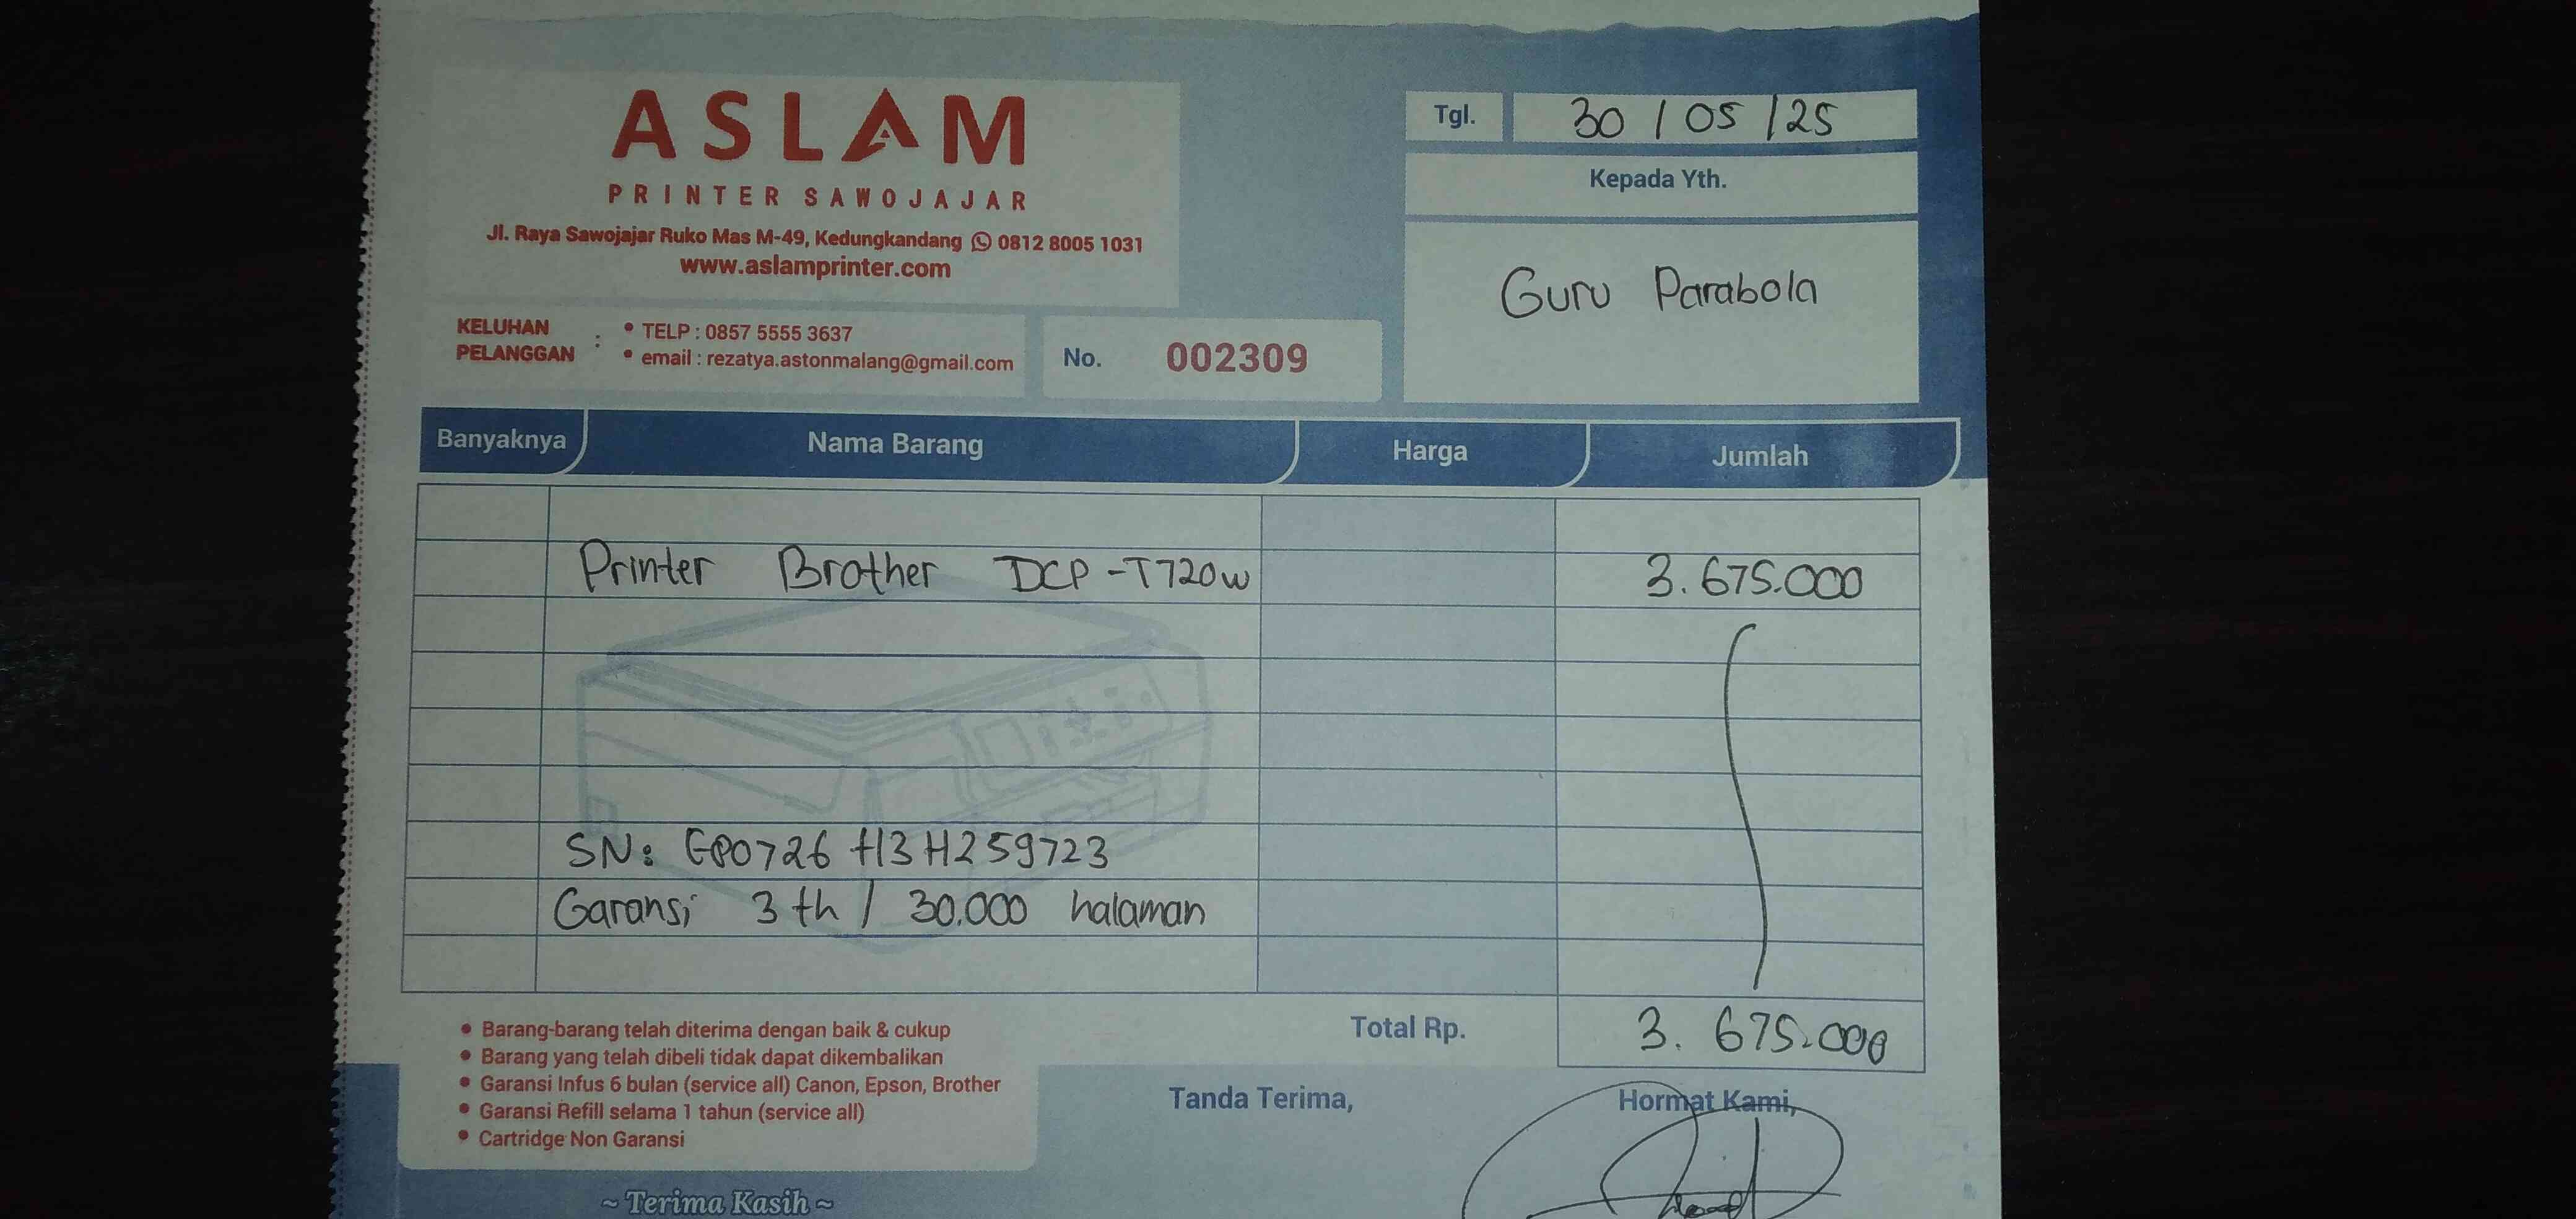 ASLAM
PRINTER SAWOJAJAR
Jl. Raya Sawojajar Ruko Mas M-49, Kedungkandang 0812 8005 1031
www.aslamprinter.com
KELUHAN PELANGGAN :
• TELP : 0857 5555 3637
• email : rezatya.astonmalang@gmail.com
No. 002309
Tgl. 30 / 05 / 25
Kepada Yth.
Guru Parabola
Banyaknya Nama Barang Harga Jumlah
Printer Brother DCP-T720w 3.675.000
SN: E80726H3H259723
Garansi 3 th / 30.000 halaman
Total Rp. 3.675.000
• Barang-barang telah diterima dengan baik & cukup
• Barang yang telah dibeli tidak dapat dikembalikan
• Garansi Infus 6 bulan (service all) Canon, Epson, Brother
• Garansi Refill selama 1 tahun (service all)
• Cartridge Non Garansi
Tanda Terima,
Hormat Kami,
~ Terima Kasih ~